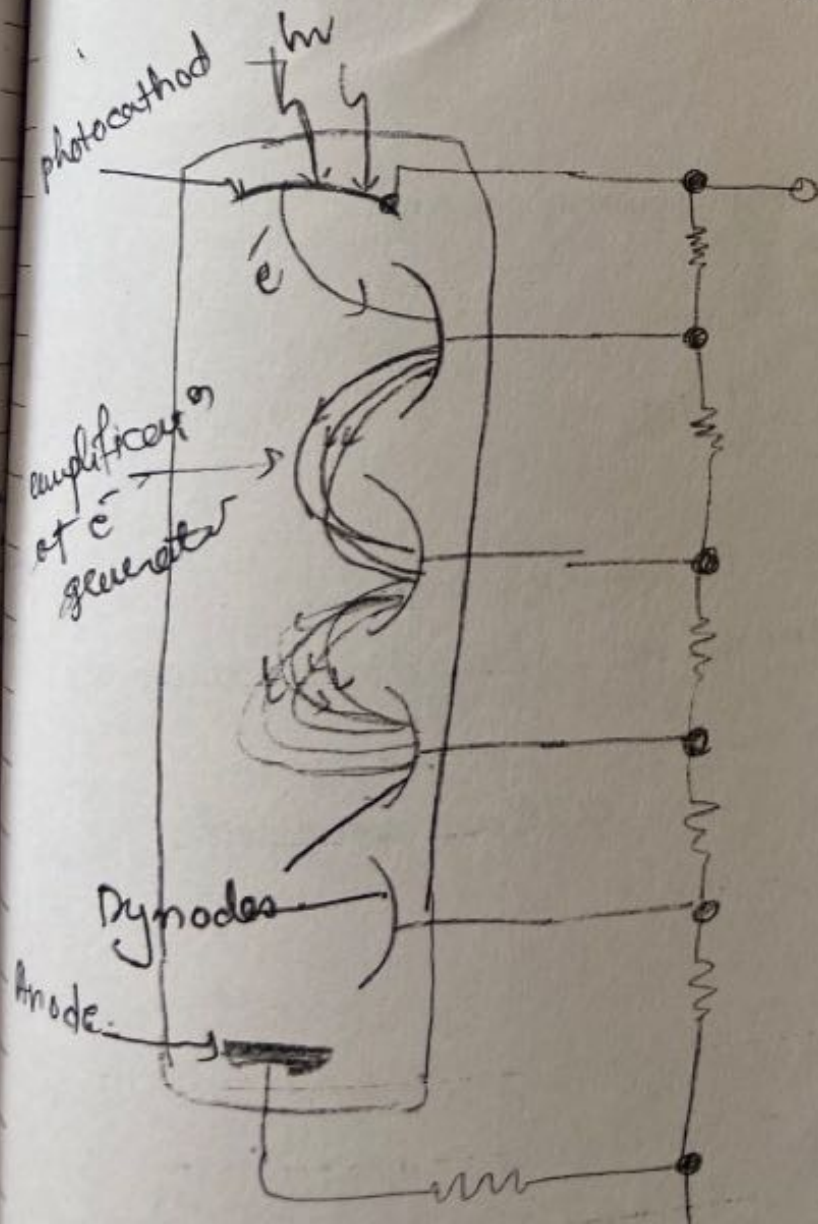 hν
photocathod
e⁻
amplificatⁿ
of e⁻
generator
Dynodes
Anode.